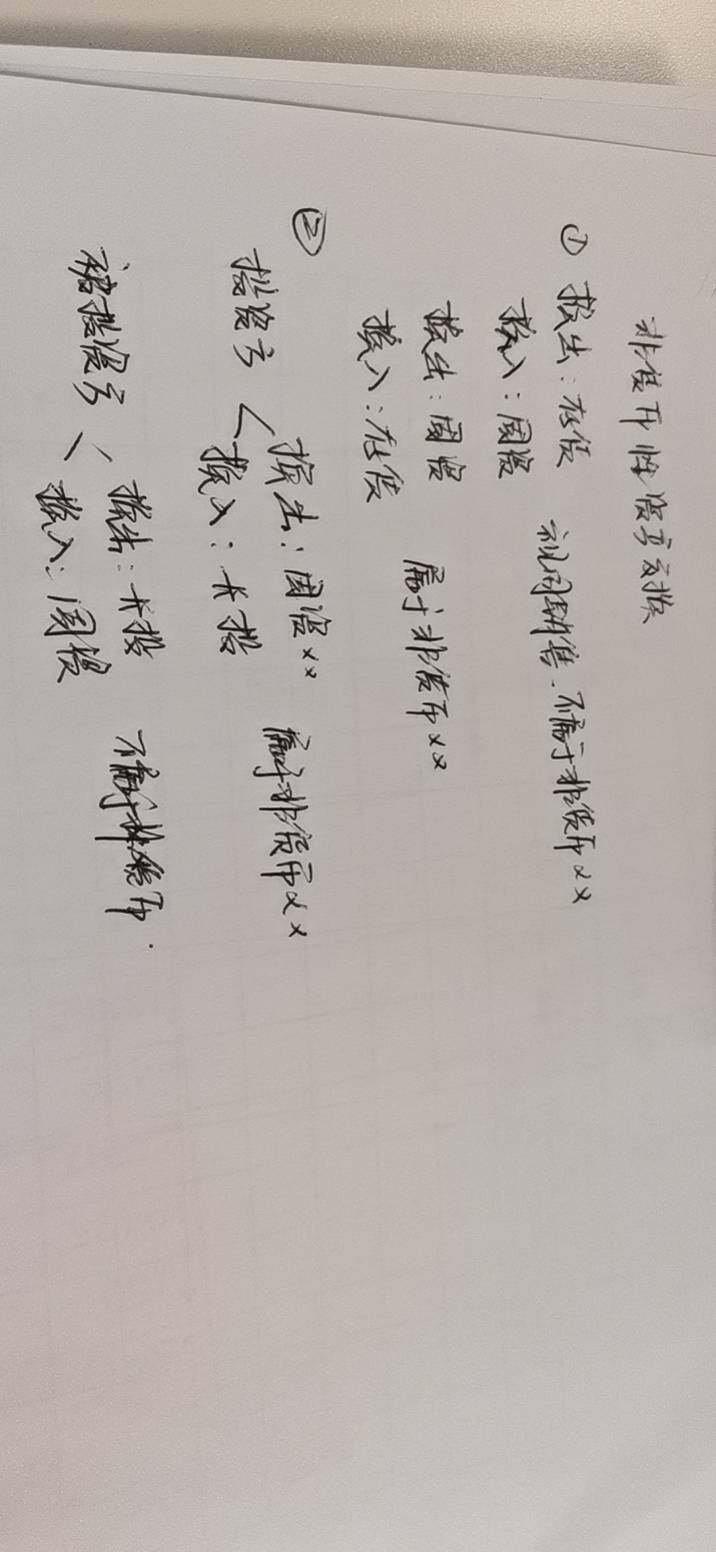 非货币性资产交换
① 换出：存货
换入：固资
视同销售、不属于非货币××
换出：固资
换入：存货
属于非货币××
②
投资方
换出：固资××
换入：长投
属于非货币××
被投资方
换出：长投
换入：固资
不属于非货币.